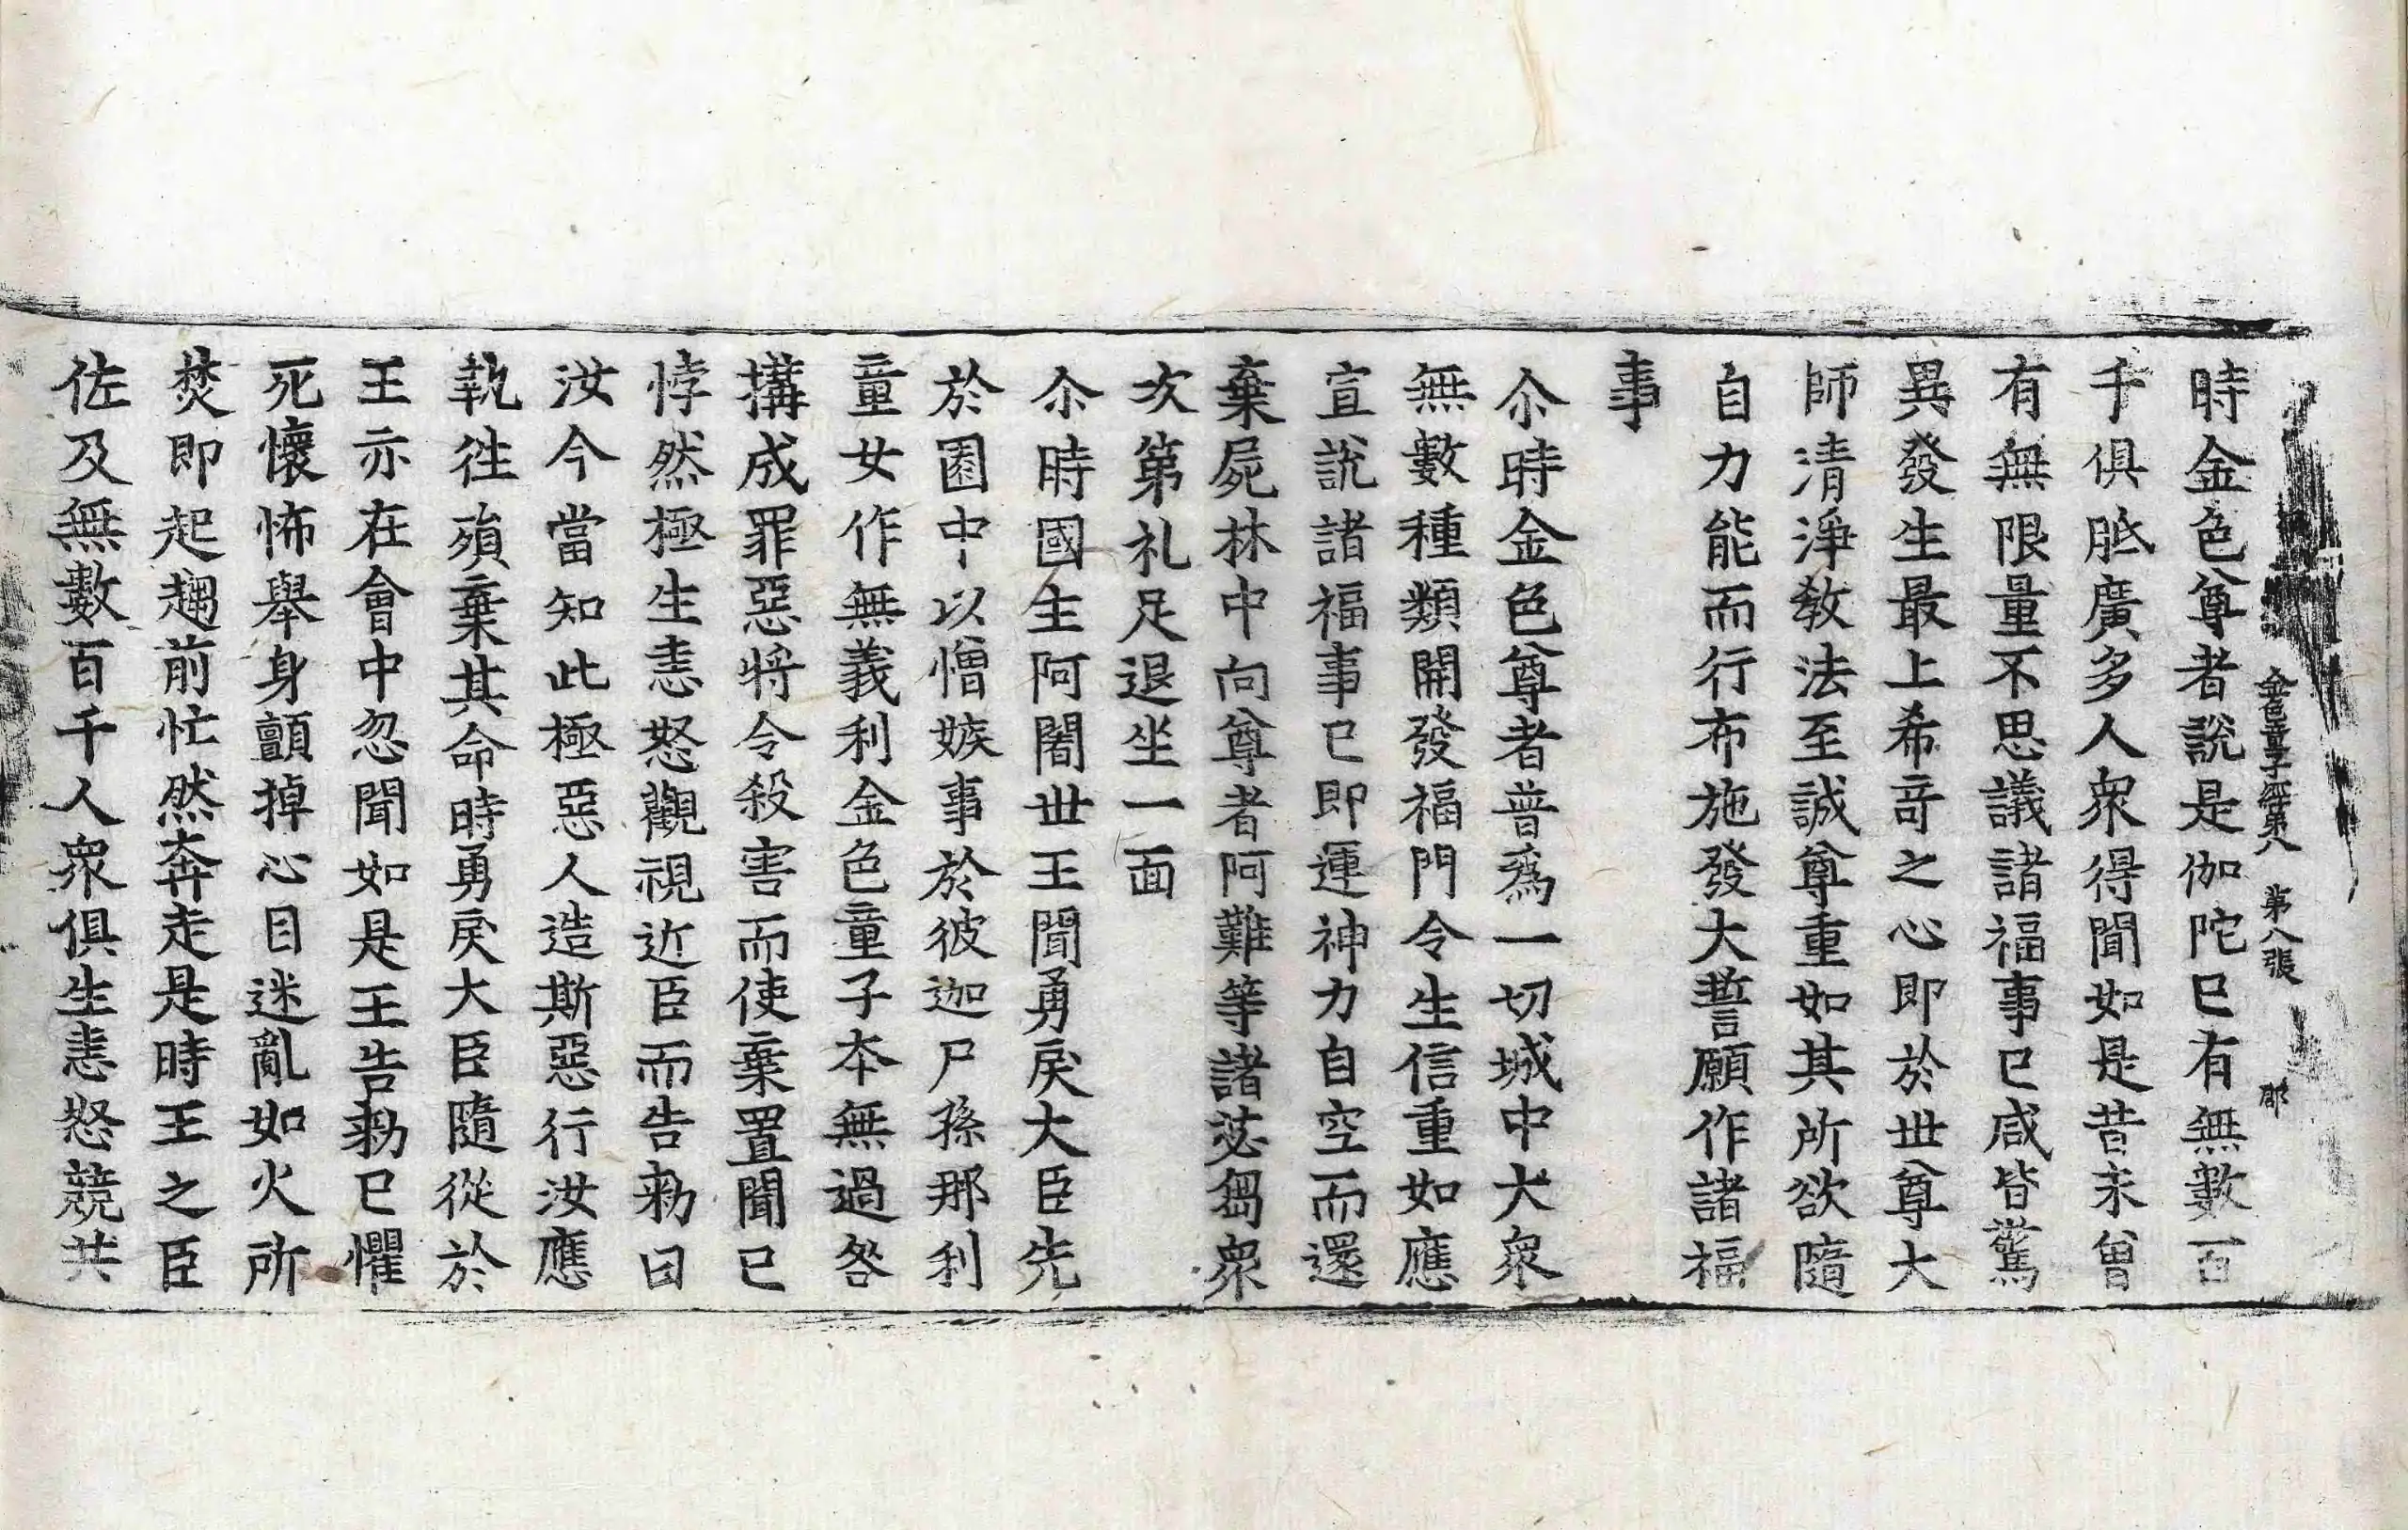 金色童子經第八 第八張 郡
時金色尊者說是伽陀已有無數百
千俱胝廣多人衆得聞如是昔未曾
有無限量不思議諸福事已咸皆驚
異發生最上希竒之心即於世尊大
師清淨敎法至誠尊重如其所欲隨
自力能而行布施發大誓願作諸福
事
尒時金色尊者普爲一切城中大衆
無數種類開發福門令生信重如應
宣說諸福事已即運神力自空而還
棄屍林中向尊者阿難等諸苾芻衆
次第礼足退坐一面
尒時國主阿闍世王聞勇戾大臣先
於園中以憎嫉事於彼迦尸孫那利
童女作無義利金色童子本無過咎
搆成罪惡將令殺害而使棄置聞已
悖然極生恚怒觀視近臣而告勑曰
汝今當知此極惡人造斯惡行汝應
執徃殞棄其命時勇戾大臣隨從於
王亦在會中忽聞如是王告勑已懼
死懷怖舉身顫掉心目迷亂如火所
焚即起趨前忙然奔走是時王之臣
佐及無數百千人衆俱生恚怒競共